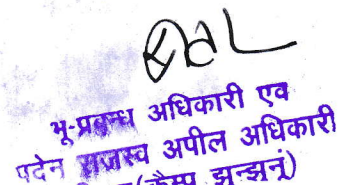 भू-प्रबन्ध अधिकारी एव
पदेन राजस्व अपील अधिकारी
(कैम्प झुन्झुनूं)